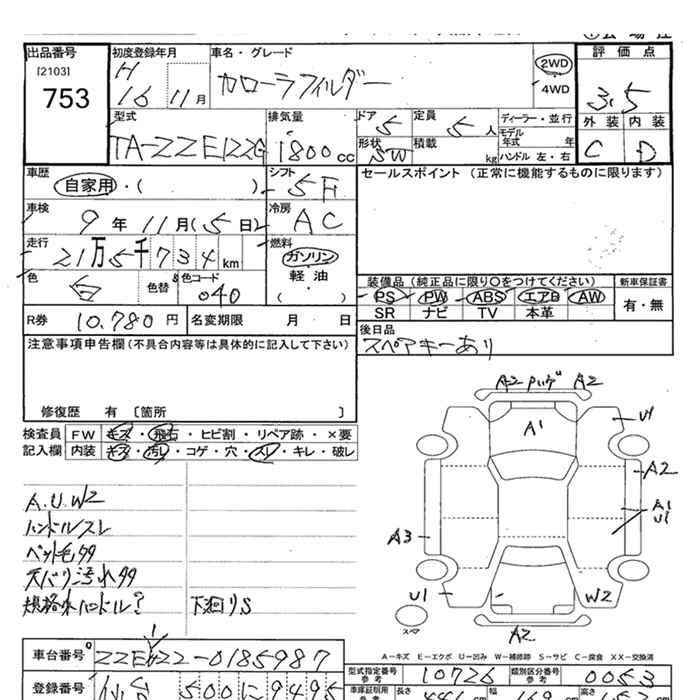 出品番号
[2103]
753
初度登録年月
H
16 11月
車名・グレード
カローラフィルダー
2WD
4WD
評価点
3.5
外装 内装
C D
型式
TA-ZZE122G
排気量
1800cc
ドア
5
形状
SW
定員
5人
積載
kg
ディーラー・並行
モデル年式 年
ハンドル 左・右
車歴
自家用・( )
シフト
5F
セールスポイント (正常に機能するものに限ります)
車検
9年11月(5日)
冷房
AC
走行
21万5千734km
燃料
ガソリン
軽・油
( ・ )
色
白
色替
色コード
040
装備品 (純正品に限り○をつけてください)
PS PW ABS エアB AW
SR ナビ TV 本革
新車保証書
有・無
R券 10.780円
名変期限 月 日
後日品
スペアキーあり
注意事項申告欄 (不具合内容等は具体的に記入して下さい)
修復歴 有 〔箇所 〕
検査員
記入欄
FW キズ・飛石・ヒビ割・リペア跡・×要
内装 キズ・汚レ・コゲ・穴・スレ・キレ・破レ
A.U.W2
ハンドルスレ
ペット毛タタ
天バリ汚れタタ
規格外ハンドル?
下廻りS
A2 A2
A1
U1
A2
A1
U1
A3
U1
W2
A2
スペア
A-キズ E-エクボ U-凹み W-補修跡 S-サビ C-腐食 XX-交換済
車台番号
ZZE122-0185987
登録番号
仙台 500 に 9495
型式指定番号
参考
10726
類別区分番号
参考
0053
車庫証明用
長さ
幅
169
高さ